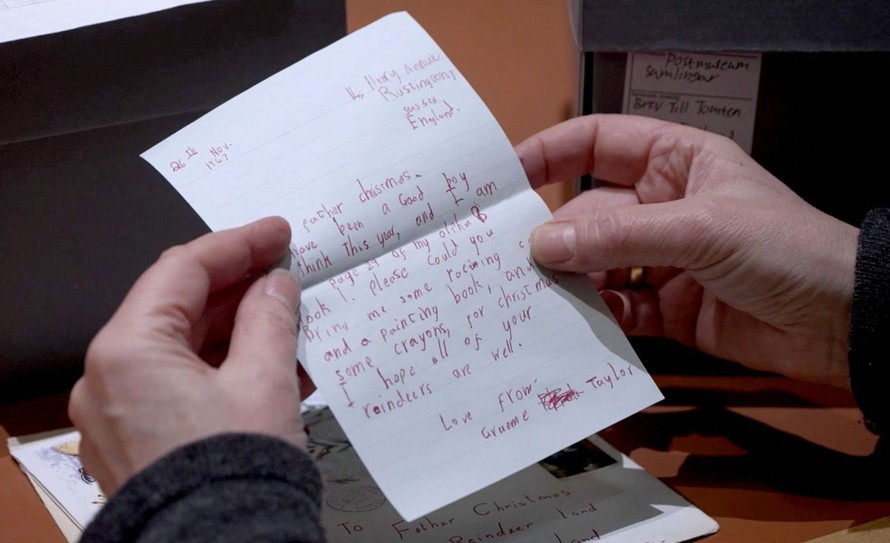 Henry Avenue
Rustington,
Sussex
England.
26th Nov.
1967
Father christmas.
have been a Good boy
think This year, and I am
page 29 of my alpha B
book 1. please could you
Bring me some racing
and a painting book, and
some crayons, for christmas
I hope all of your
reindeers are well.
Love from.
Graeme Taylor
To Father Christmas
Reindeer land
land
Postmuseum
samlingar
Brev Till Tomten